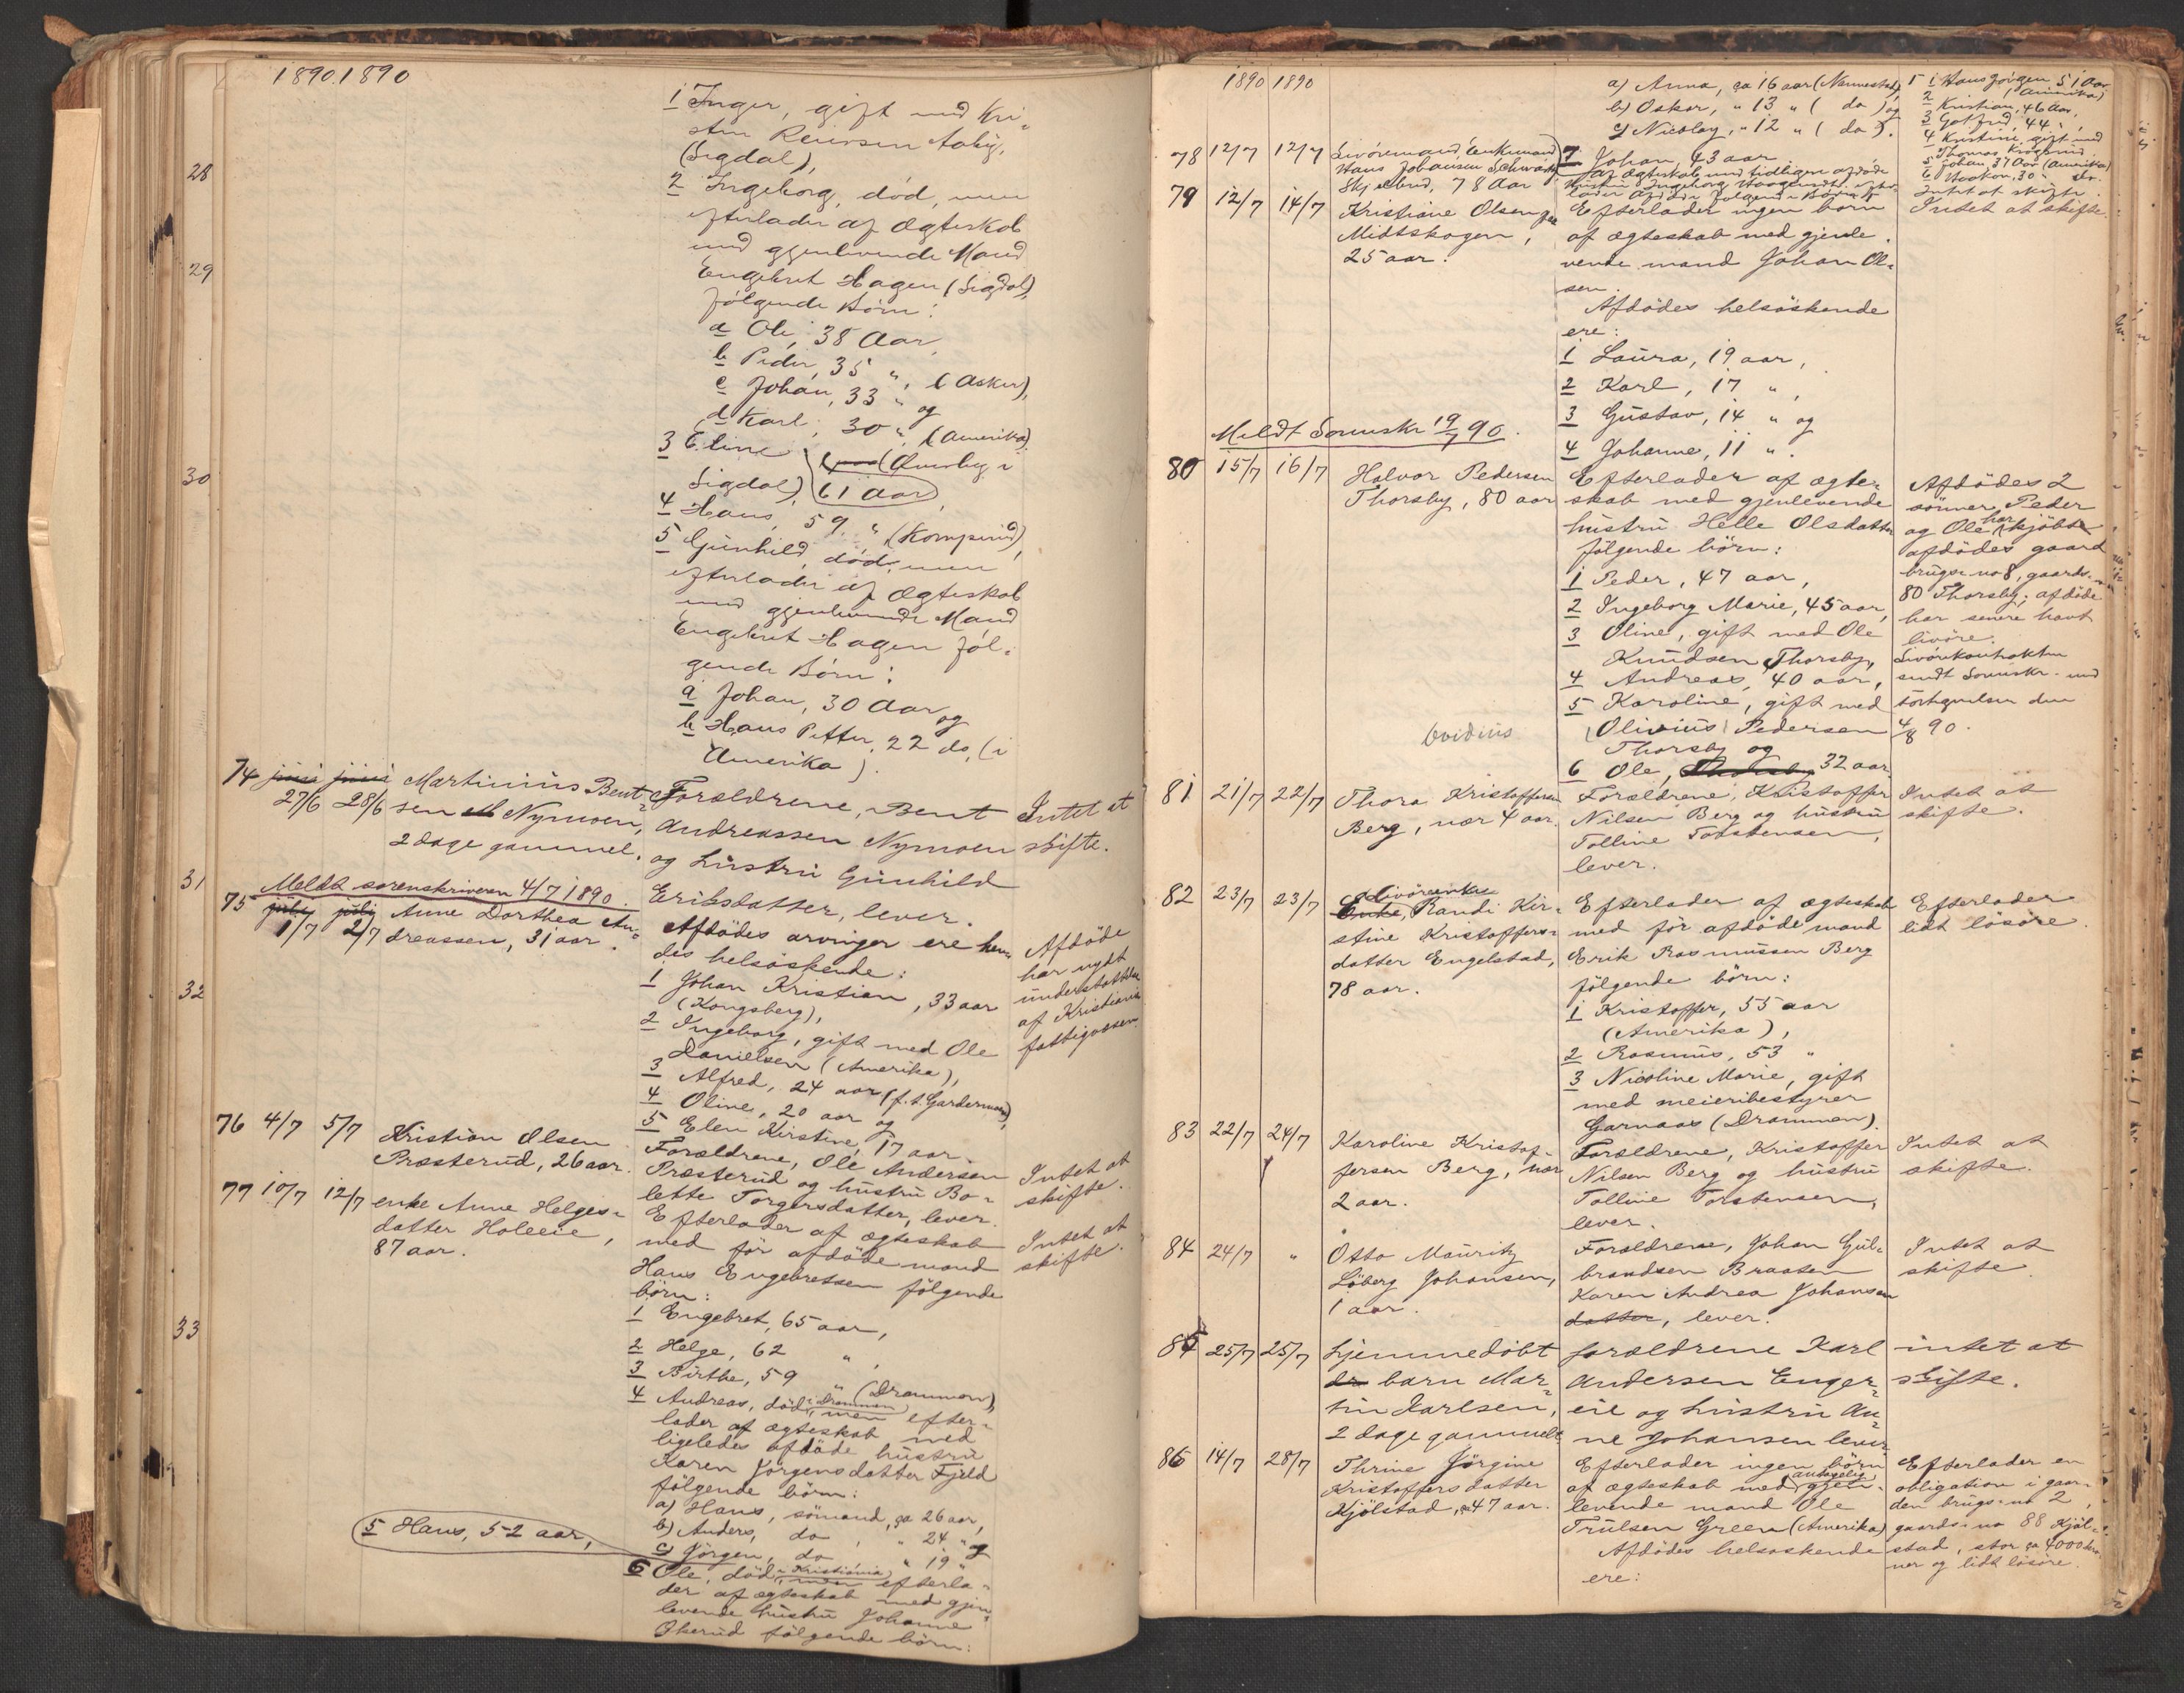 1890. 1890
1 Inger, gift med Kri-
sten Reiersen Aaby,
(Sigdal),
2 Ingeborg, död, men
efterlader af Ægteskab
med gjenlevende Mand
Engebret Hagen (Sigdal),
følgende Børn:
a Ole, 38 Aar,
b Peder, 35 ",
c Johan, 33 " (Asker),
og
d Karl, 30 " (Amerika).
3 Eline (Overby i
Sigdal), 61 Aar,
4 Hans, 59 "
5 Gunhild, død, men
efterlader af Ægteskab
med gjenlevende Mand
Engebret Hagen føl-
gende Børn:
a Johan, 30 Aar
og
b Hans Petter, 22 do, (i
Amerika).
74 juni juni Martinius Bent-
27/6 28/6 sen Nymoen,
2 dage gammel.
Forældrene, Bent
Andreassen Nymoen
og hustru Gunhild
Eriksdatter, lever.
Intet at
skifte.
Meldt sorenskriveren 4/7 1890.
75 juli juli Anne Dorthea An-
1/7 2/7 dreassen, 31 aar.
Afdödes arvinger ere hen-
des helsöskende:
1 Johan Kristian, 33 aar
(Kongsberg),
2 Ingeborg, gift med Ole
Danielsen (Amerika),
3 Alfred, 24 aar (f. t. Gardermoen),
4 Oline, 20 aar og
5 Elen Kirstine, 17 aar.
Afdöde
har nydt
understöttelse
af Kristiania
fattigvæsen.
76 4/7 5/7 Kristian Olsen
Præsterud, 26 aar.
Forældrene, Ole Andersen
Præsterud og hustru Bo-
lette Torgersdatter, lever.
Intet at
skifte.
77 10/7 12/7 enke Anne Helges-
datter Holeeie,
87 aar.
Efterlader af ægteskab
med för afdöde mand
Hans Engebretsen fölgende
börn:
1 Engebret, 65 aar,
2 Helge, 62 ",
3 Birthe, 59 " (Drammen),
4 Andreas, död i Drammen, men efter-
lader af ægteskab med
ligeledes afdöde hustru
Karen Jörgensdatter Fjeld
fölgende börn:
a) Hans, sömand, ca 26 aar,
b) Anders, do, " 24 " og
c) Jörgen, do " 19 "
5 Hans, 52 aar,
6 Ole, död i Kristiania, men efterla-
der af ægteskab med gjen-
levende hustru Johanne
Okerud fölgende börn:
Intet at
skifte.
28
29
30
31
32
33
1890 1890
a) Anna, ca 16 aar (Nannestad),
b) Oskar, " 13 " ( do ) og
c) Nicolay, " 12 " ( do ).
7 Johan, 43 aar
78 12/7 12/7 Livöremand (enkemand)
Hans Johansen Schwartz
Skjelbred, 78 Aar
af Ægteskab med tidligere afdöde
Hustru Ingeborg
1 Hans Jörgen 51 Aar
(Amerika)
2 Kristian, 46 Aar,
3 Gotfred, 44 ",
4 Kristine, gift med
Thomas
5 Johan, 37 Aar (Amerika)
6 Haakon, 30 " do.
Intet at skifte.
79 12/7 14/7 Kristiane Olsen
Midtskogen,
25 aar.
Efterlader ingen børn
af ægteskab med gjenle-
vende mand Johan Ol-
sen.
Afdödes helsöskende
ere:
1 Laura, 19 aar,
2 Karl, 17 ",
3 Gustav, 14 " og
4 Johanne, 11 ".
Intet at skifte.
Meldt Sorenskr 19/7 90.
80 15/7 16/7 Halvor Pedersen
Thorsby, 80 aar
Efterlader af ægte-
skab med gjenlevende
hustru Helle Olsdatter
fölgende börn:
1 Peder, 47 aar,
2 Ingeborg Marie, 45 aar,
3 Oline, gift med Ole
Knudsen Thorsby,
4 Andreas, 40 aar,
5 Karoline, gift med
Olivius Pedersen
Thorsby og
6 Ole, Thorsby 32 aar.
Ovidius
Afdödes 2
sönner, Peder
og Ole har kjöbt
afdödes gaard
brugs-no 8, gaards-no
80 Thorsby; afdöde
har senere havt
livöre.
Livörekontrakten
sendt Sorenskr. med
den
4/8 90.
81 21/7 22/7 Thora Kristoffersen
Berg, nær 4 aar.
Forældrene, Kristoffer
Nilsen Berg og hustru
Tolline Torstensen,
lever.
Intet at
skifte.
82 23/7 23/7 Livöreenke
Enke, Randi Kir-
stine Kristoffers-
datter Engelstad,
78 aar.
Efterlader af ægteskab
med för afdöde mand
Erik Rasmussen Berg
fölgende börn:
1 Kristoffer, 55 aar
(Amerika),
2 Rasmus, 53 "
3 Nicoline Marie, gift
med meieribestyrer
Garnaas (Drammen).
Efterlader
lidt lösöre.
83 22/7 24/7 Karoline Kristof-
fersen Berg, nær
2 aar.
Forældrene, Kristoffer
Nilsen Berg og hustru
Tolline Torstensen,
lever.
Intet at
skifte.
84 24/7 " Otto Mauritz
Löberg Johansen,
1 aar.
Forældrene, Johan Gul-
brandsen Braaten
Karen Andrea Johansen
datter, lever.
Intet at
skifte
85 25/7 25/7 hjemmedöbt
barn Mar-
tin Karlsen,
2 dage gammelt
forældrene Karl
Andersen Enger-
eie og hustru An-
ne Johansen lever
intet at
skifte.
86 14/7 28/7 Thrine Jörgine
Kristoffersdatter
Kjölstad, ca 47 aar.
Efterlader ingen börn
af ægteskab med antagelig gjen-
levende mand Ole
Trulsen Green (Amerika)
Afdödes helsöskende
ere:
Efterlader en
obligation i gaar-
den brugs-no 2,
gaards-no 88 Kjöl-
stad, stor ca 4000 kro-
ner og lidt lösöre.